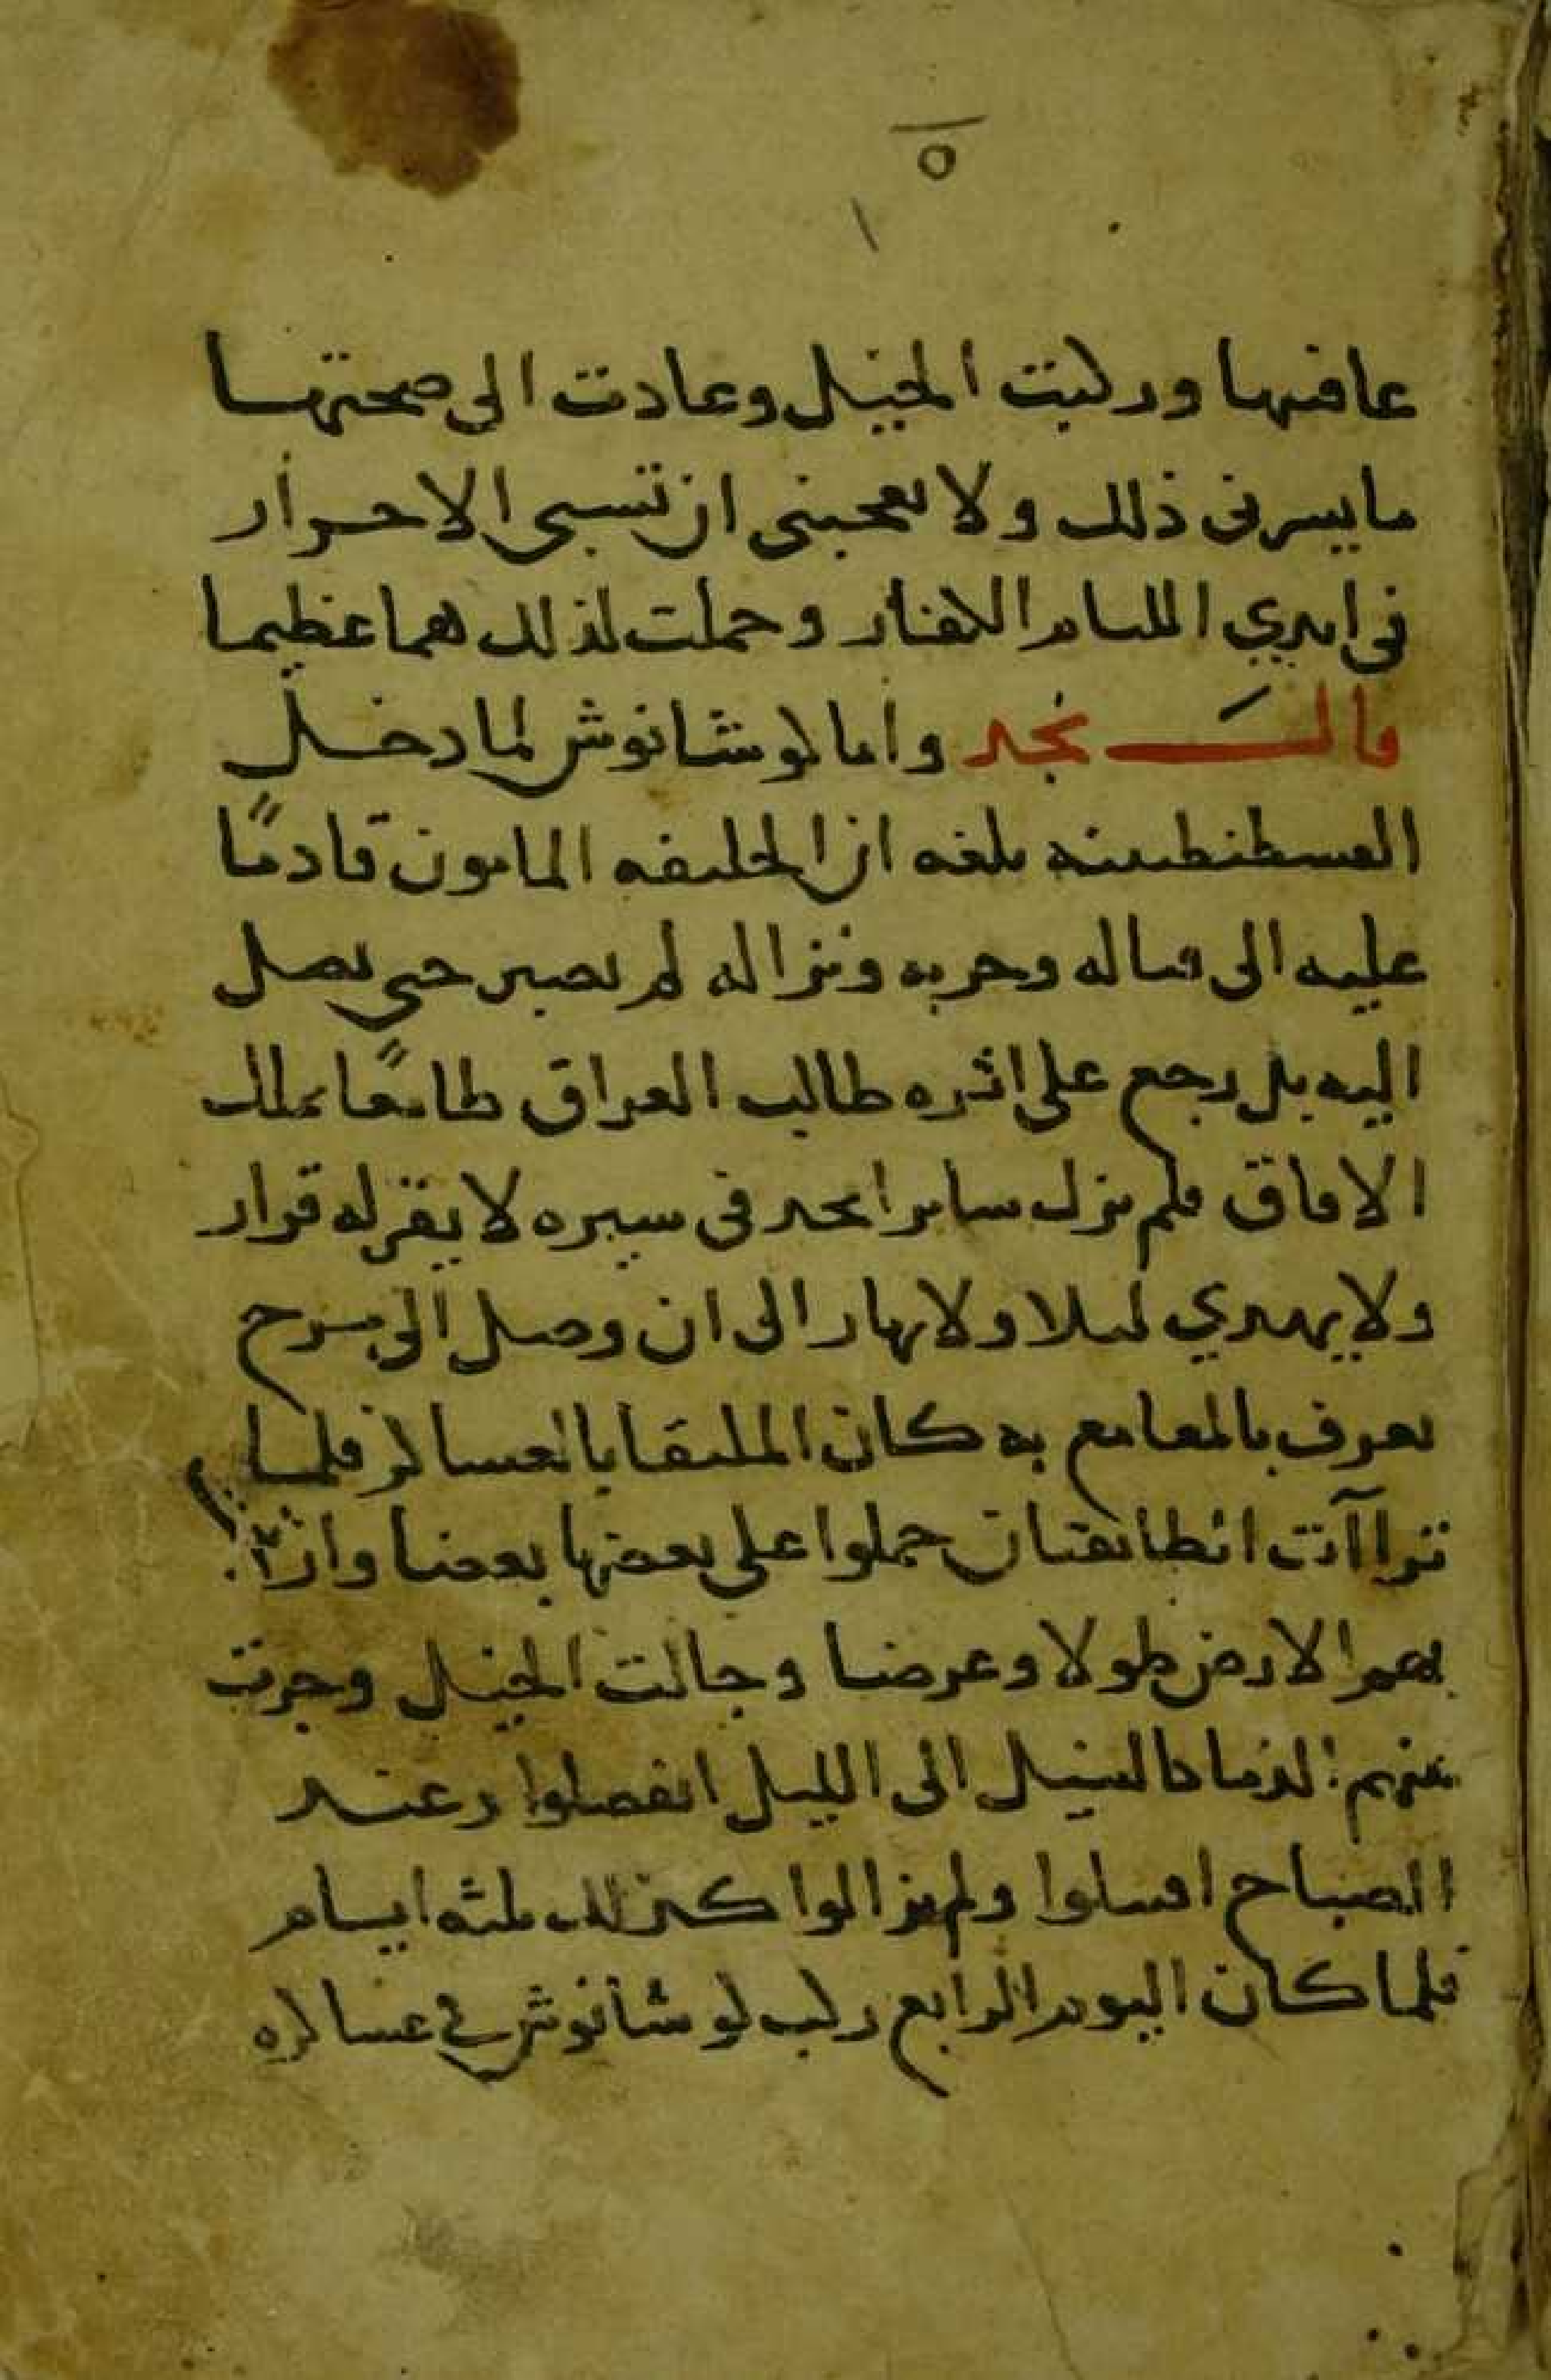 ٥
عافيتها وركبت الخيل وعادت الى صحتها
ما يسرني ذلك ولا يعجبني ان تسبى الاحرار
في ايدي اللئام الكفار وحملت لذلك هما عظيما
قال نجد واما لوشانوش لما دخل
القسطنطينه بلغه ان الخليفه المامون قادمًا
عليه الى قتاله وحربه ونزاله لم يصبر حتى يصل
اليه بل رجع على اثره طالب العراق طامعًا بملك
الافاق فلم يزل سايرا يجد في سيره لا يقر له قرار
ولا يهدي ليلا ولا نهارا الى ان وصل الى مرج
يعرف بالمعامع به كان الملتقا بالعساكر فلما
تراآت الطائفتان حملوا على بعضها بعضا وارتج
بهم الارض طولا وعرضا وجالت الخيل وجرت
منهم الدما كالسيل الى الليل انفصلوا وعند
الصباح اقبلوا ولم يزالوا كذلك ثلثه ايام
فلما كان اليوم الرابع ركب لوشانوش في عساكره